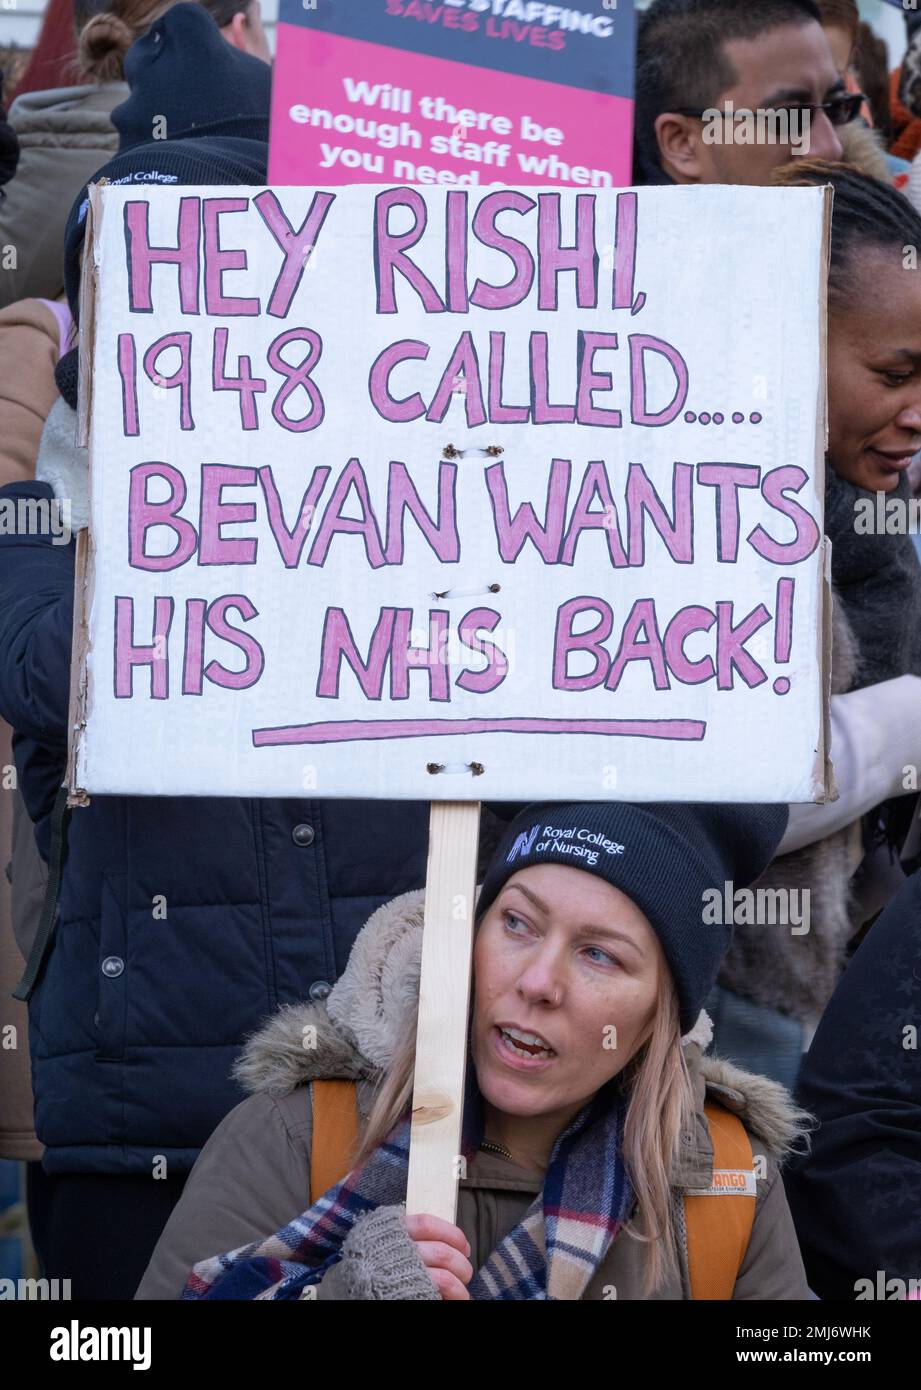 STAFFING
SAVES LIVES
Will there be
enough staff when
you need
Royal College
HEY RISHI,
1948 CALLED.....
BEVAN WANTS
HIS NHS BACK!
Royal College
of Nursing
alamy
Image ID: 2MJ6WHK
www.alamy.com